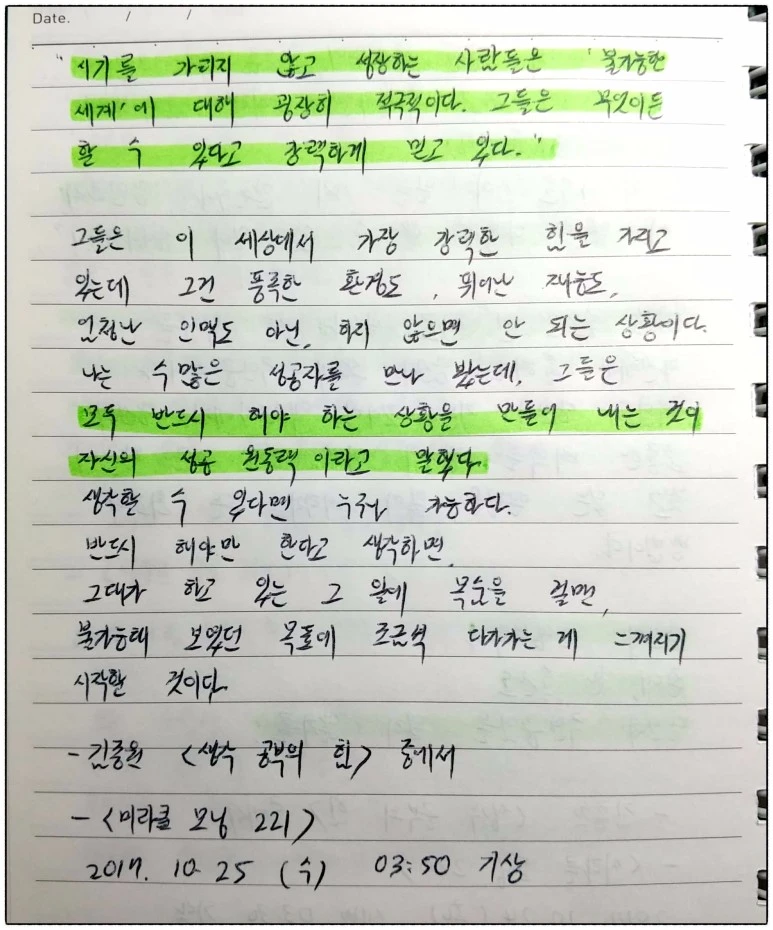 Date. / /
"시기를 가리지 않고 성장하는 사람들은 '불가능한
세계'에 대해 굉장히 적극적이다. 그들은 무엇이든
할 수 있다고 강력하게 믿고 있다."
그들은 이 세상에서 가장 강력한 힘을 가지고
있는데 그건 풍족한 환경도, 뛰어난 재능도,
엄청난 인맥도 아닌, 하지 않으면 안 되는 상황이다.
나는 수많은 성공자를 만나 봤는데, 그들은
모두 반드시 해야 하는 상황을 만들어 내는 것이
자신의 성공 원동력이라고 말했다.
생각할 수 있다면 누구나 가능하다.
반드시 해야만 한다고 생각하면,
그대가 하고 있는 그 일에 목숨을 걸면,
불가능해 보였던 목표에 조금씩 다가가는 게 느껴지기
시작할 것이다.
- 김종원 <생각 공부의 힘> 중에서
- <미라클 모닝 221>
2017. 10. 25 (수) 03:50 기상